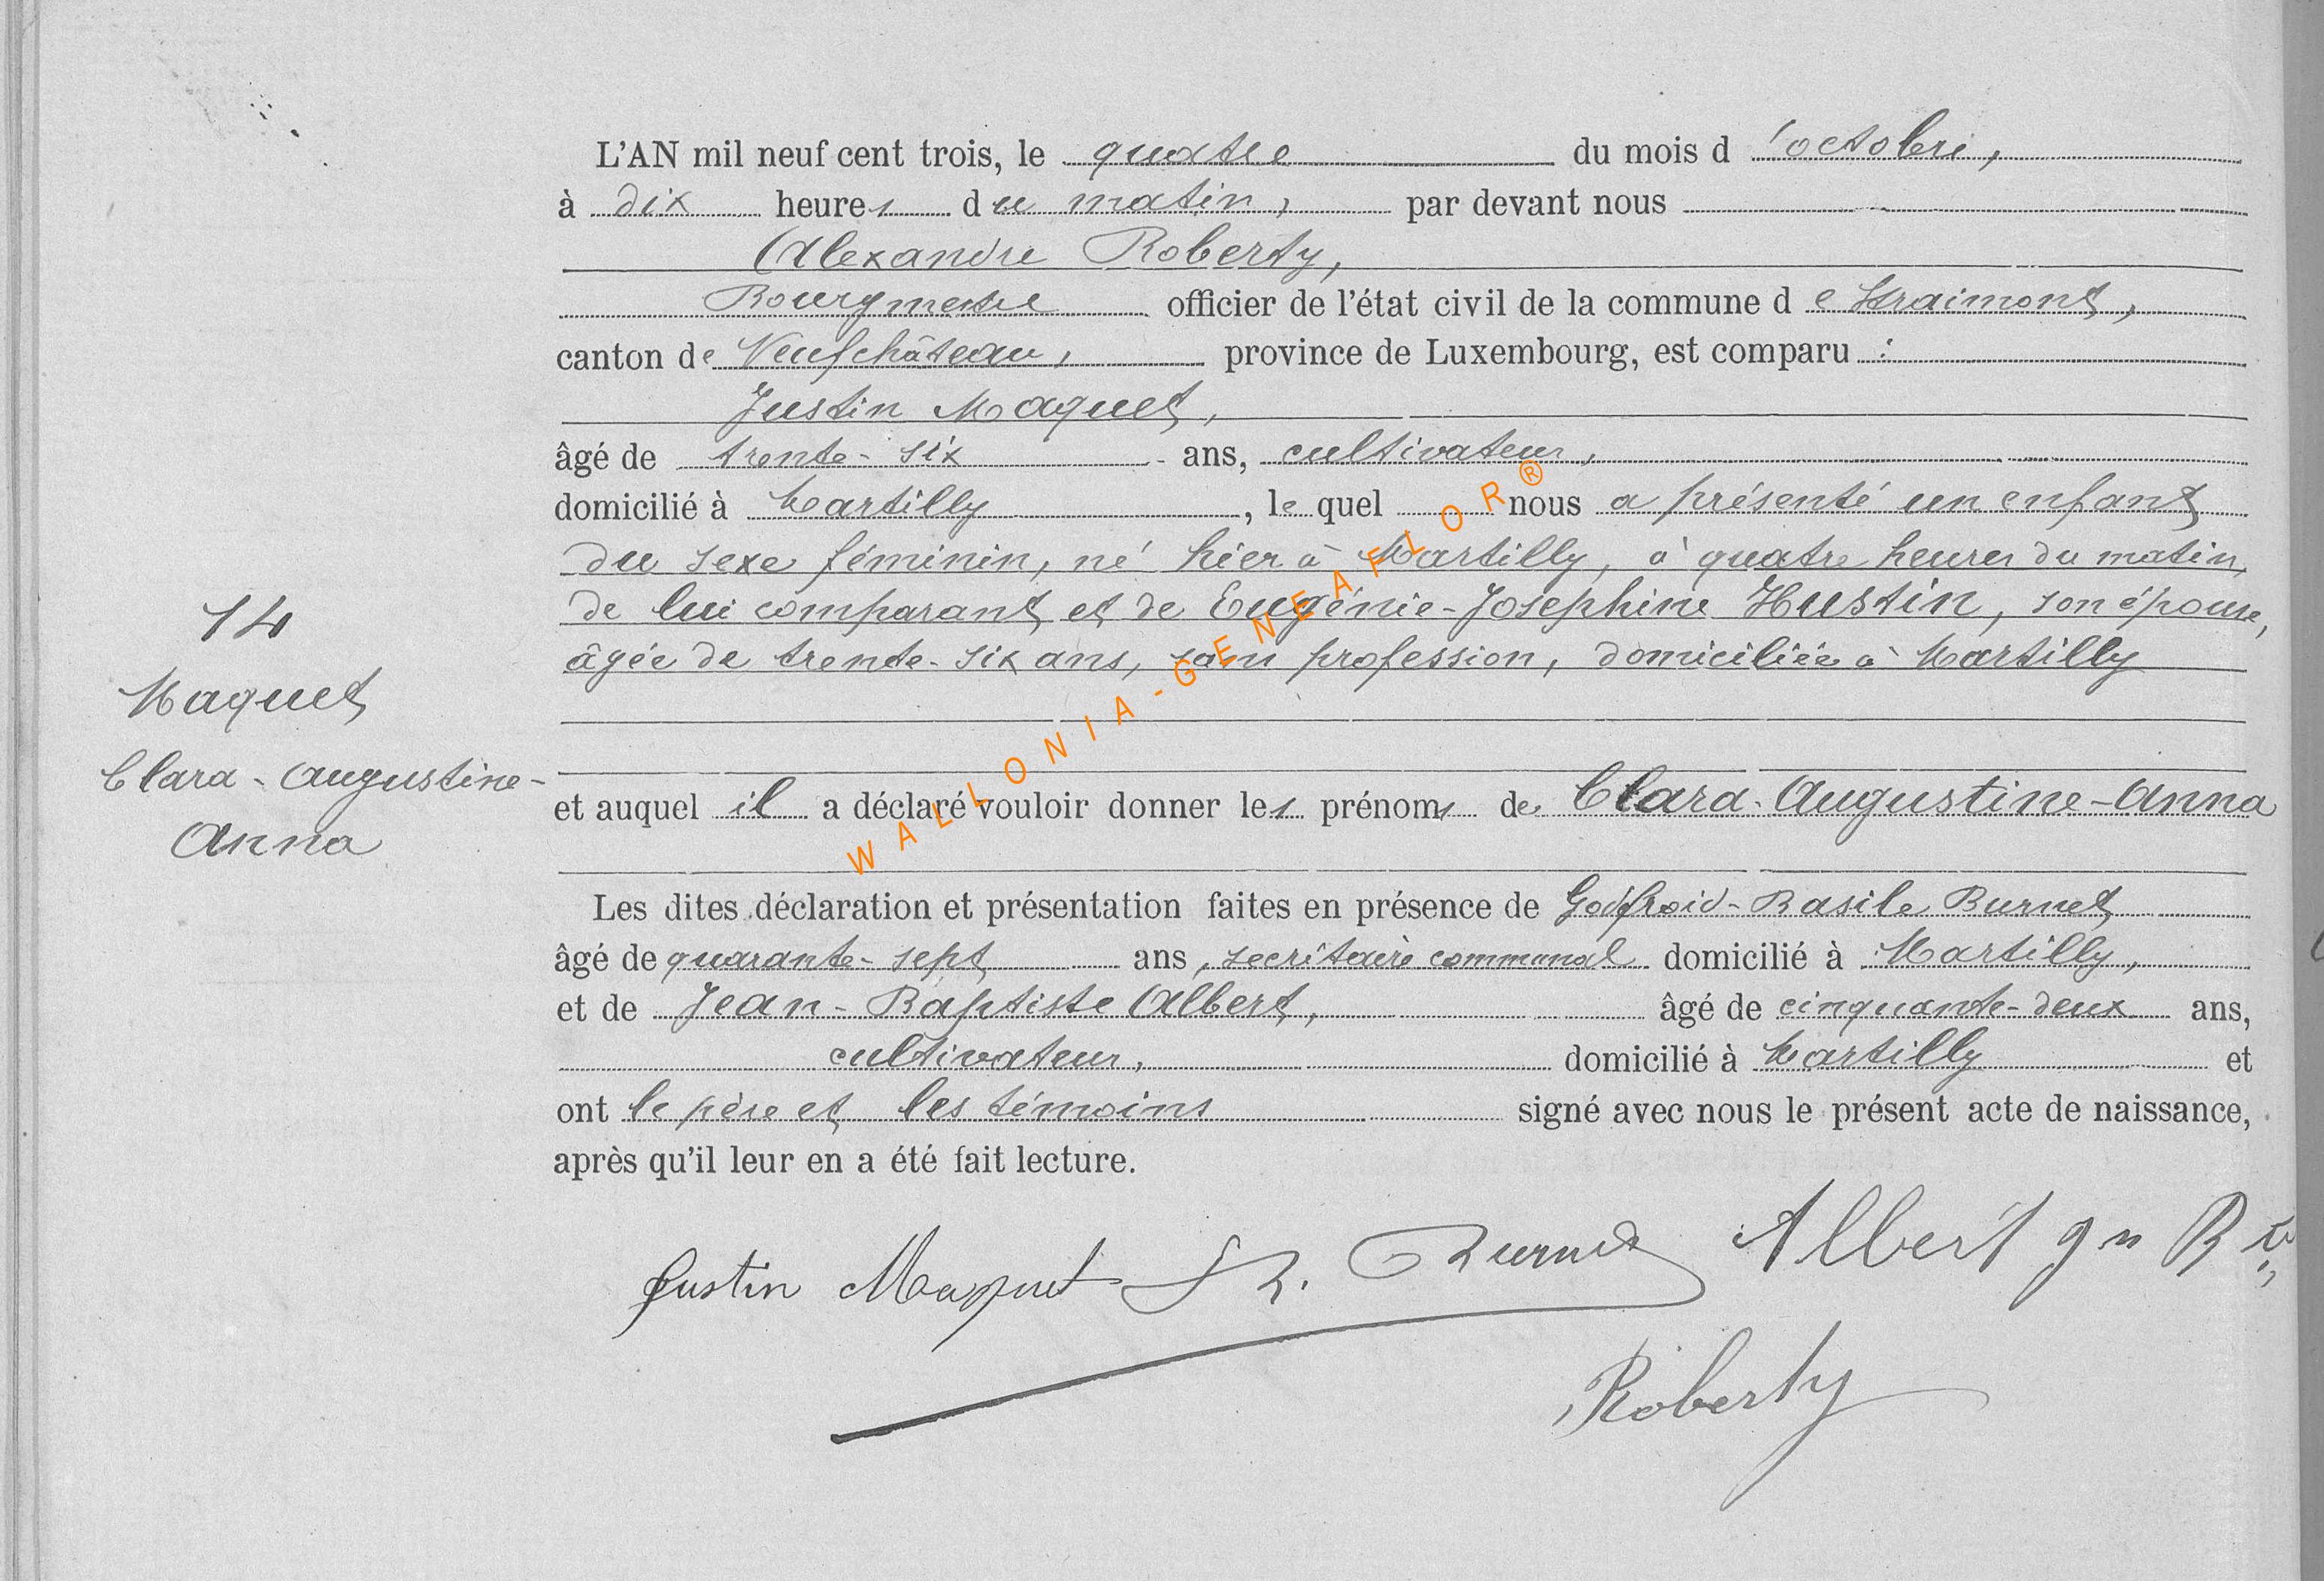 L'AN mil neuf cent trois, le quatre du mois d'octobre,
à dix heures du matin, par devant nous
Alexandre Roberty,
Bourgmestre officier de l'état civil de la commune de Straimont,
canton de Neufchâteau, province de Luxembourg, est comparu :
Justin Maquet,
âgé de trente-six ans, cultivateur,
domicilié à Martilly, lequel nous a présenté un enfant
du sexe féminin, né hier à Martilly, à quatre heures du matin,
de lui comparant et de Eugénie-Josephine Hustin, son épouse,
âgée de trente-six ans, sans profession, domiciliée à Martilly
14
Maquet
Clara-Augustine-
Anna
et auquel il a déclaré vouloir donner les prénoms de Clara-Augustine-Anna
Les dites déclaration et présentation faites en présence de Godfroid-Basile Burnet
âgé de quarante-sept ans, secrétaire communal domicilié à Martilly,
et de Jean-Baptiste Albert, âgé de cinquante-deux ans,
cultivateur, domicilié à Martilly et
ont le père et les témoins signé avec nous le présent acte de naissance,
après qu'il leur en a été fait lecture.
Justin Maquet Burnet Albert
Roberty
WALLONIA-GENEAFLOR®